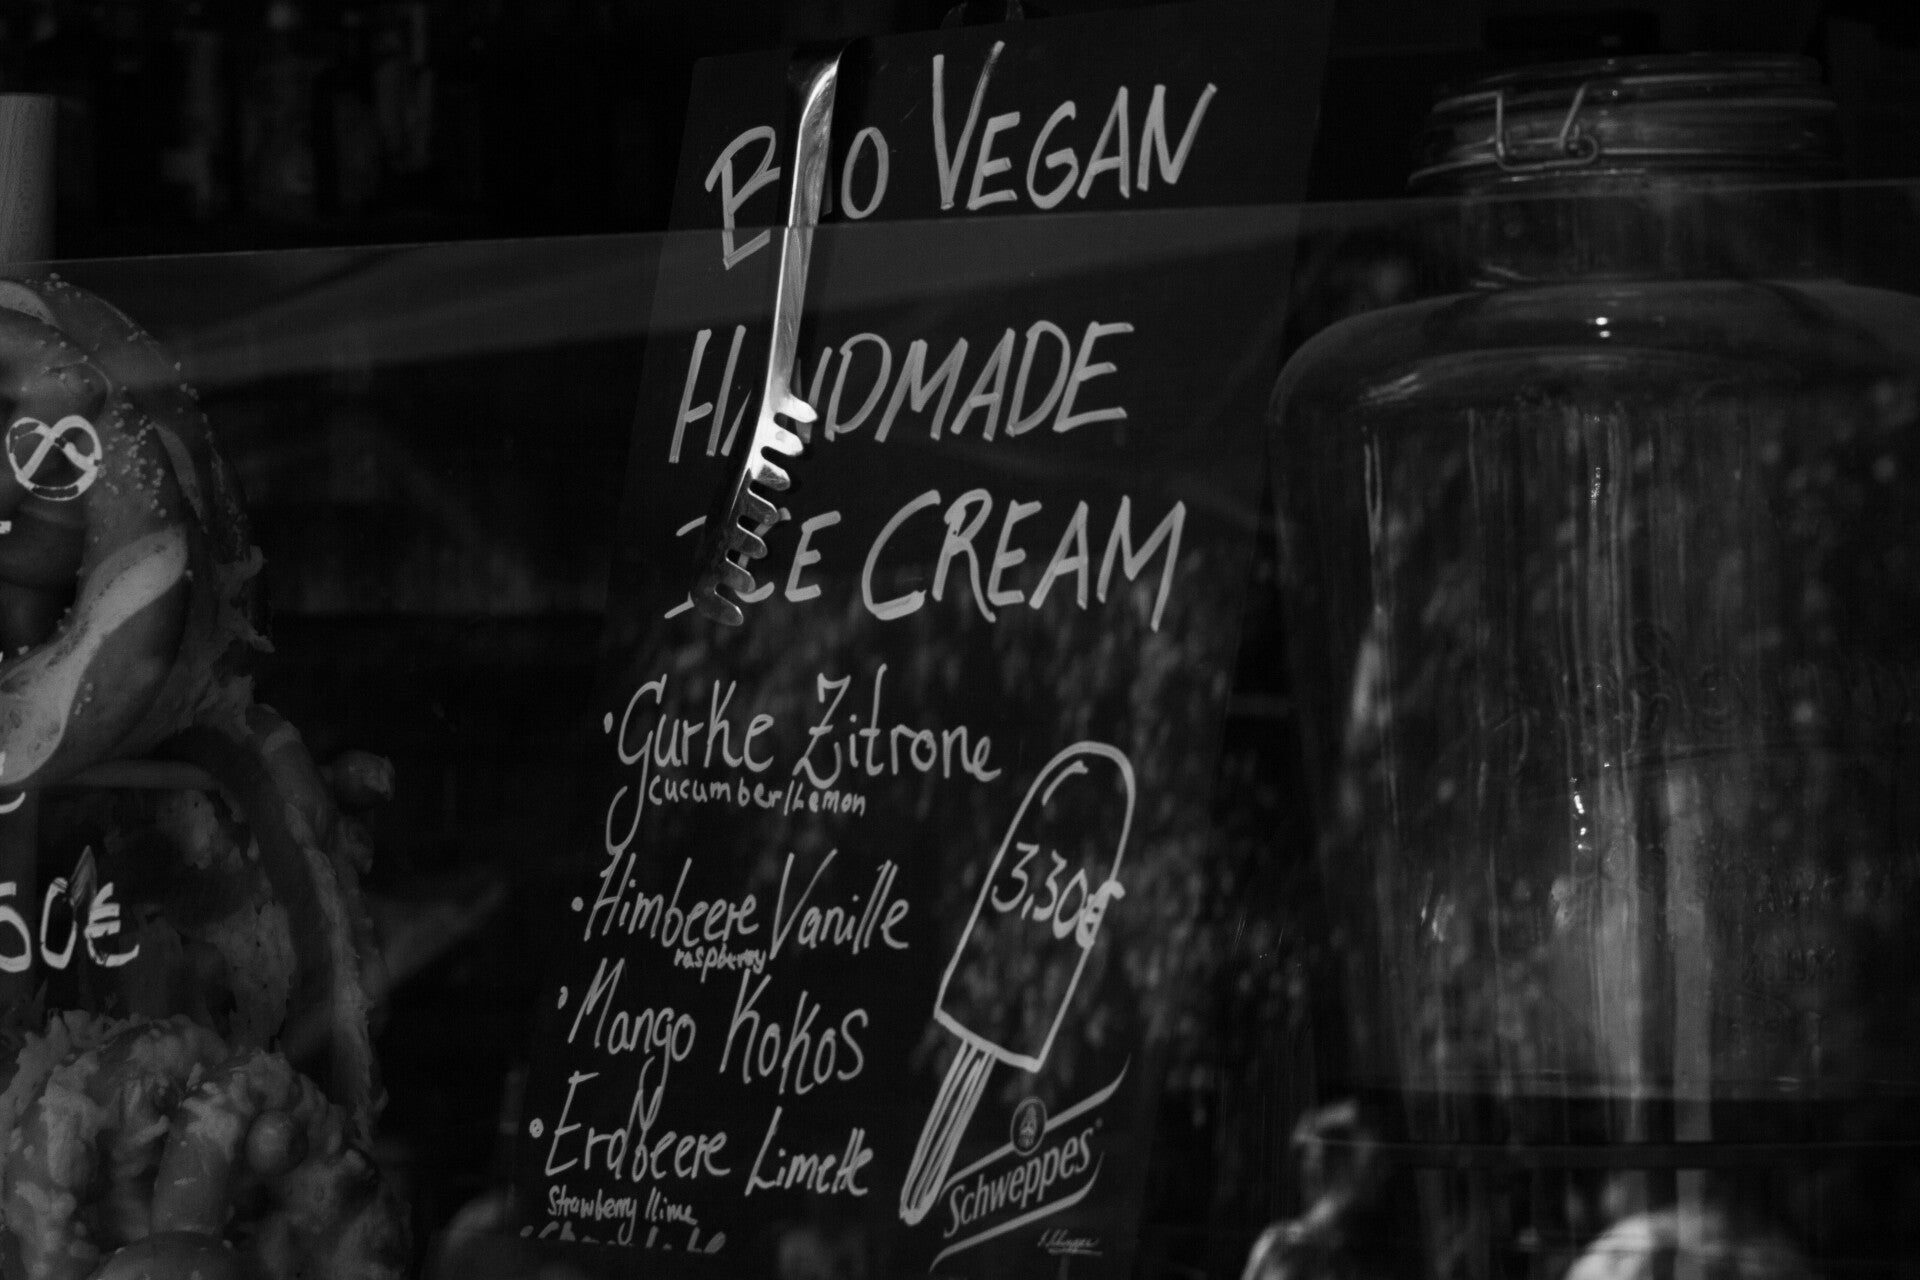 BIO VEGAN
HANDMADE
ICE CREAM
• Gurke Zitrone
cucumber/Lemon
• Himbeere Vanille
raspberry
• Mango Kokos
• Erdbeere Limette
Strawberry/lime
3,30€
Schweppes
50€
8